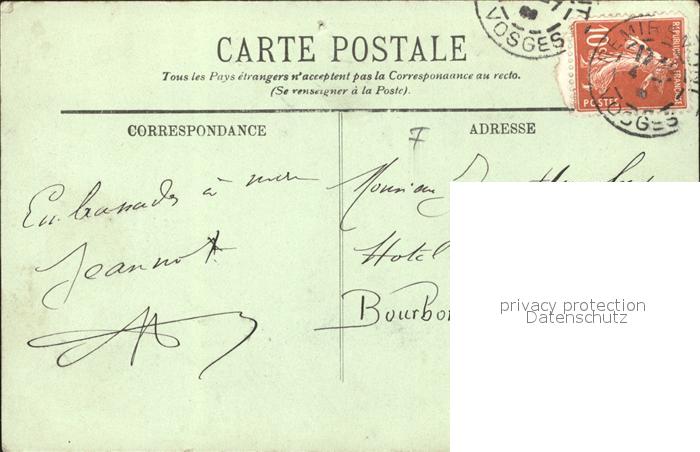 CARTE POSTALE
Tous les Pays étrangers n'acceptent pas la Correspondance au recto.
(Se renseigner à la Poste).
CORRESPONDANCE
ADRESSE
7
Embrassades à mon
Jeannot
Monsieur
Hotel
Bourbon
privacy protection
Datenschutz
VOSGES
10
POSTES
REPUBLIQUE FRANÇAISE
VOSGES